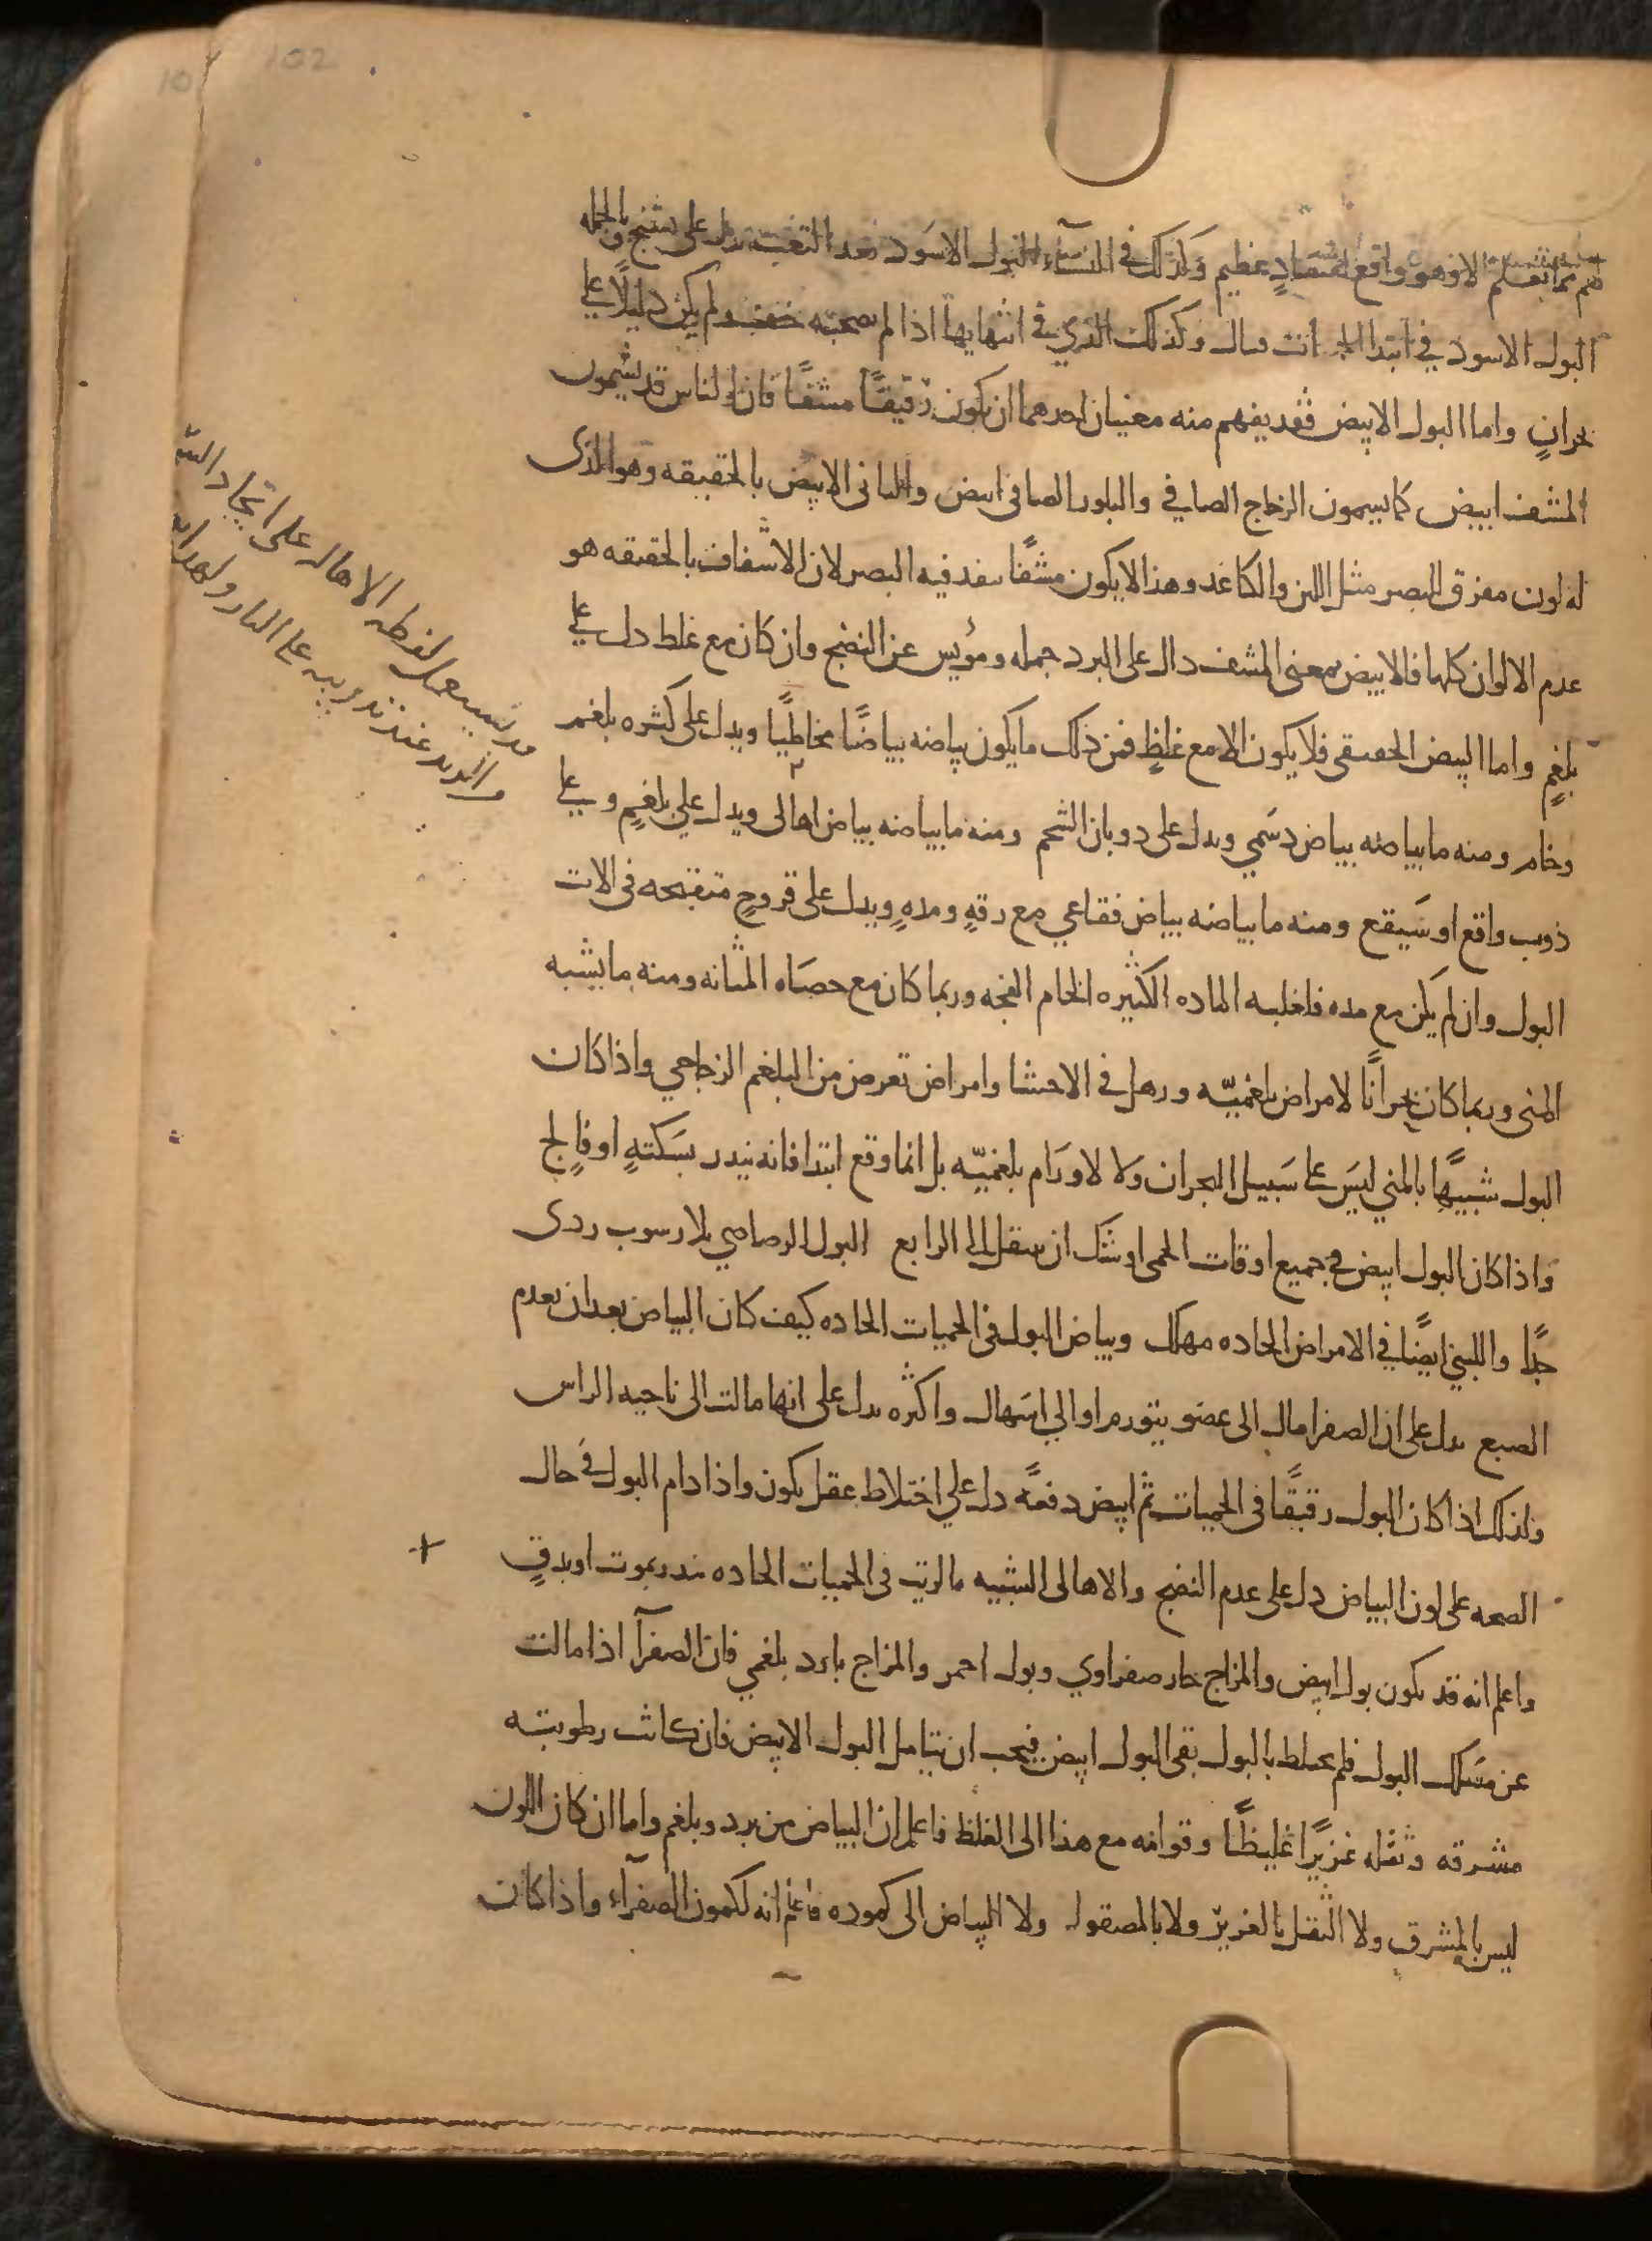 الا فهو واقع لفساد عظيم وكذلك في النساء البول الاسود بعد التعب يدل على تشنج وبالجمله
البول الاسود في ابتدا وكذلك الذي في انتهايها اذا لم يصحبه خف ولم يكن دليلًا علي
بحرانٍ واما البول الابيض فقد يفهم منه معنيان احدهما ان يكون رقيقًا مشفًا فان الناس قد يسمون
المشف ابيض كما يسمون الزجاج الصافي والبلور الصافي ابيض والثاني الابيض بالحقيقه وهو الذي
له لون مفرق للبصر مثل اللبن والكاغد وهذا لا يكون مشفًا ينفد فيه البصر لان الاشفاف بالحقيقه هو
عدم الالوان كلها فالابيض بمعنى المشف دال على البرد جمله ومؤيس عن النضج وان كان مع غلط دل علي
بلغمٍ واما البيض الحقيقي فلا يكون الا مع غلظٍ فمن ذلك ما يكون بياضه بياضًا مخاطيًا ويدل على كثره بلغم
وخام ومنه ما بياضه بياض دسَمي ويدل على دوبان الشحم ومنه ما بياضه بياض اهالى ويدل علي بلغمٍ وعلي
ذوب واقع او سَيقع ومنه ما بياضه بياض فقاعي مع رقهٍ ومدهٍ ويدل على قروحٍ متقيحه في الات
البول وان لم يكن مع مده فلغلبه الماده الكثيره الخام الفجه وربما كان مع حصَاه المثانه ومنه ما يشبه
المنى وربما كان بحرانًا لامراض بلغميّه ورهل في الاحشا وامراض تعرض من البلغم الزجاجي واذا كان
البول شبيهًا بالمني ليسَ علي سَبيل البحران ولا لاورَام بلغميّه بل انما وقع ابتدا فانه ينذر بسَكتهٍ او فالج
واذا كان البول ابيض في جميع اوقات الحمى اوشك ان ينتقل الى الرابع البول الرصاصي بلا رسوب ردى
جدًا واللبني ايضًا في الامراض الحاده مهلك وبياض البول في الحميات الحاده كيف كان البياض بعد ان يعدم
الصبع يدل على ان الصفرا مال الى عضو يتورم او الى اسَهال واكثره يدل على انها مالت الى ناحيه الراس
ولذلك اذا كان البول رقيقًا في الحميات ثم ابيض دفعهً دل علي اختلاط عقل يكون واذا دام البول في حال
الصحه على لون البياض دل على عدم النضج والاهالى الشبيه بالزيت في الحميات الحاده ينذر بموت او بدقٍ
واعلم انه قد يكون بول ابيض والمزاج حار صفراوي وبول احمر والمزاج بارد بلغمي فان الصفرآ اذا مالت
عن مسَلك البول فلم يختلط بالبول بقي البول ابيض فيجب ان يتامل البول الابيض فان كانت رطوبته
مشرقه وثقله غزيرًا غليظًا وقوامه مع هذا الى الغلظ فاعلم ان البياض من برد وبلغم واما ان كان اللون
ليس بالمشرق ولا الثقل بالغزير ولا بالمصقول ولا البياض الى كموده فاعلم انه لكمون الصفرآء واذا كانت